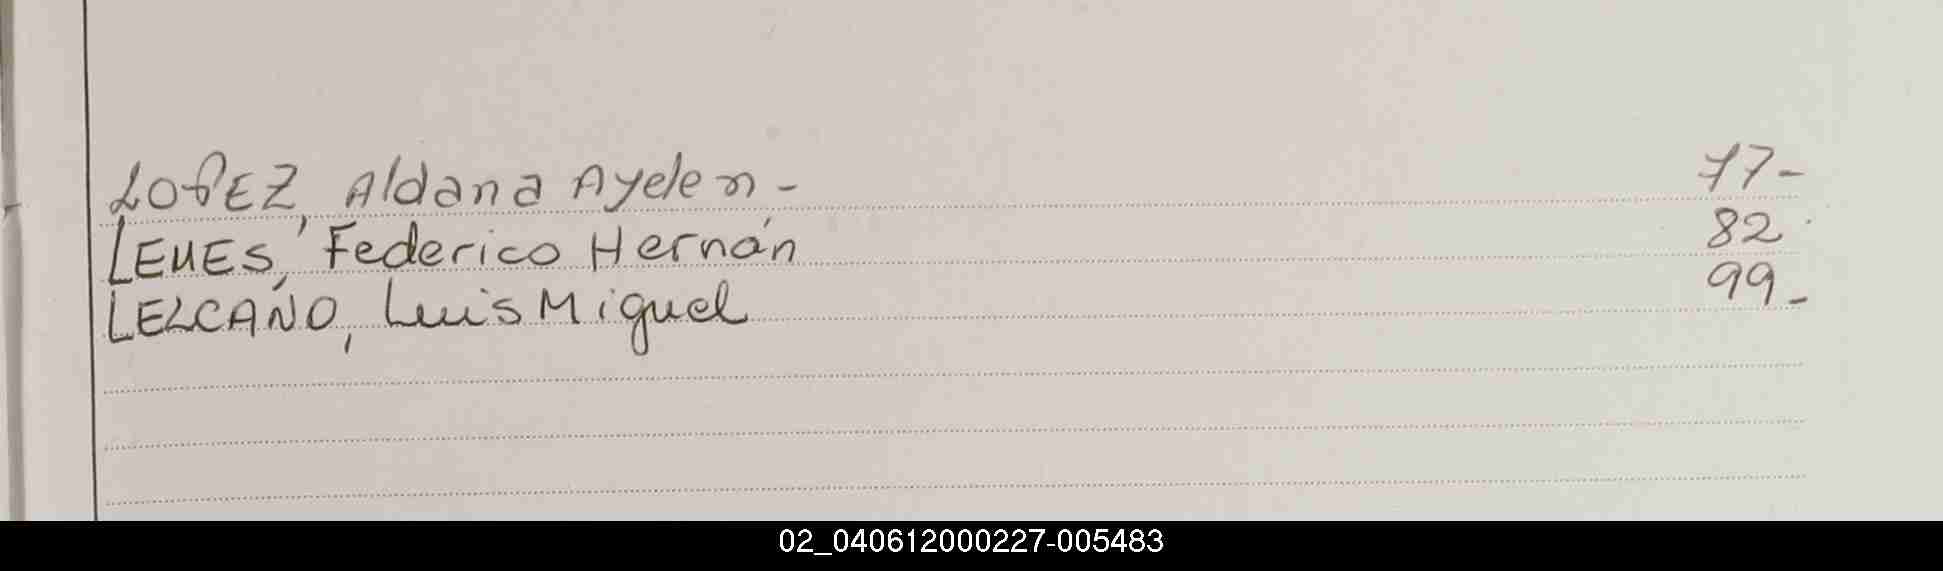 LOPEZ, Aldana Ayelen - 77-
LEMES, Federico Hernán 82
LEZCANO, Luis Miguel 99-
02_040612000227-005483